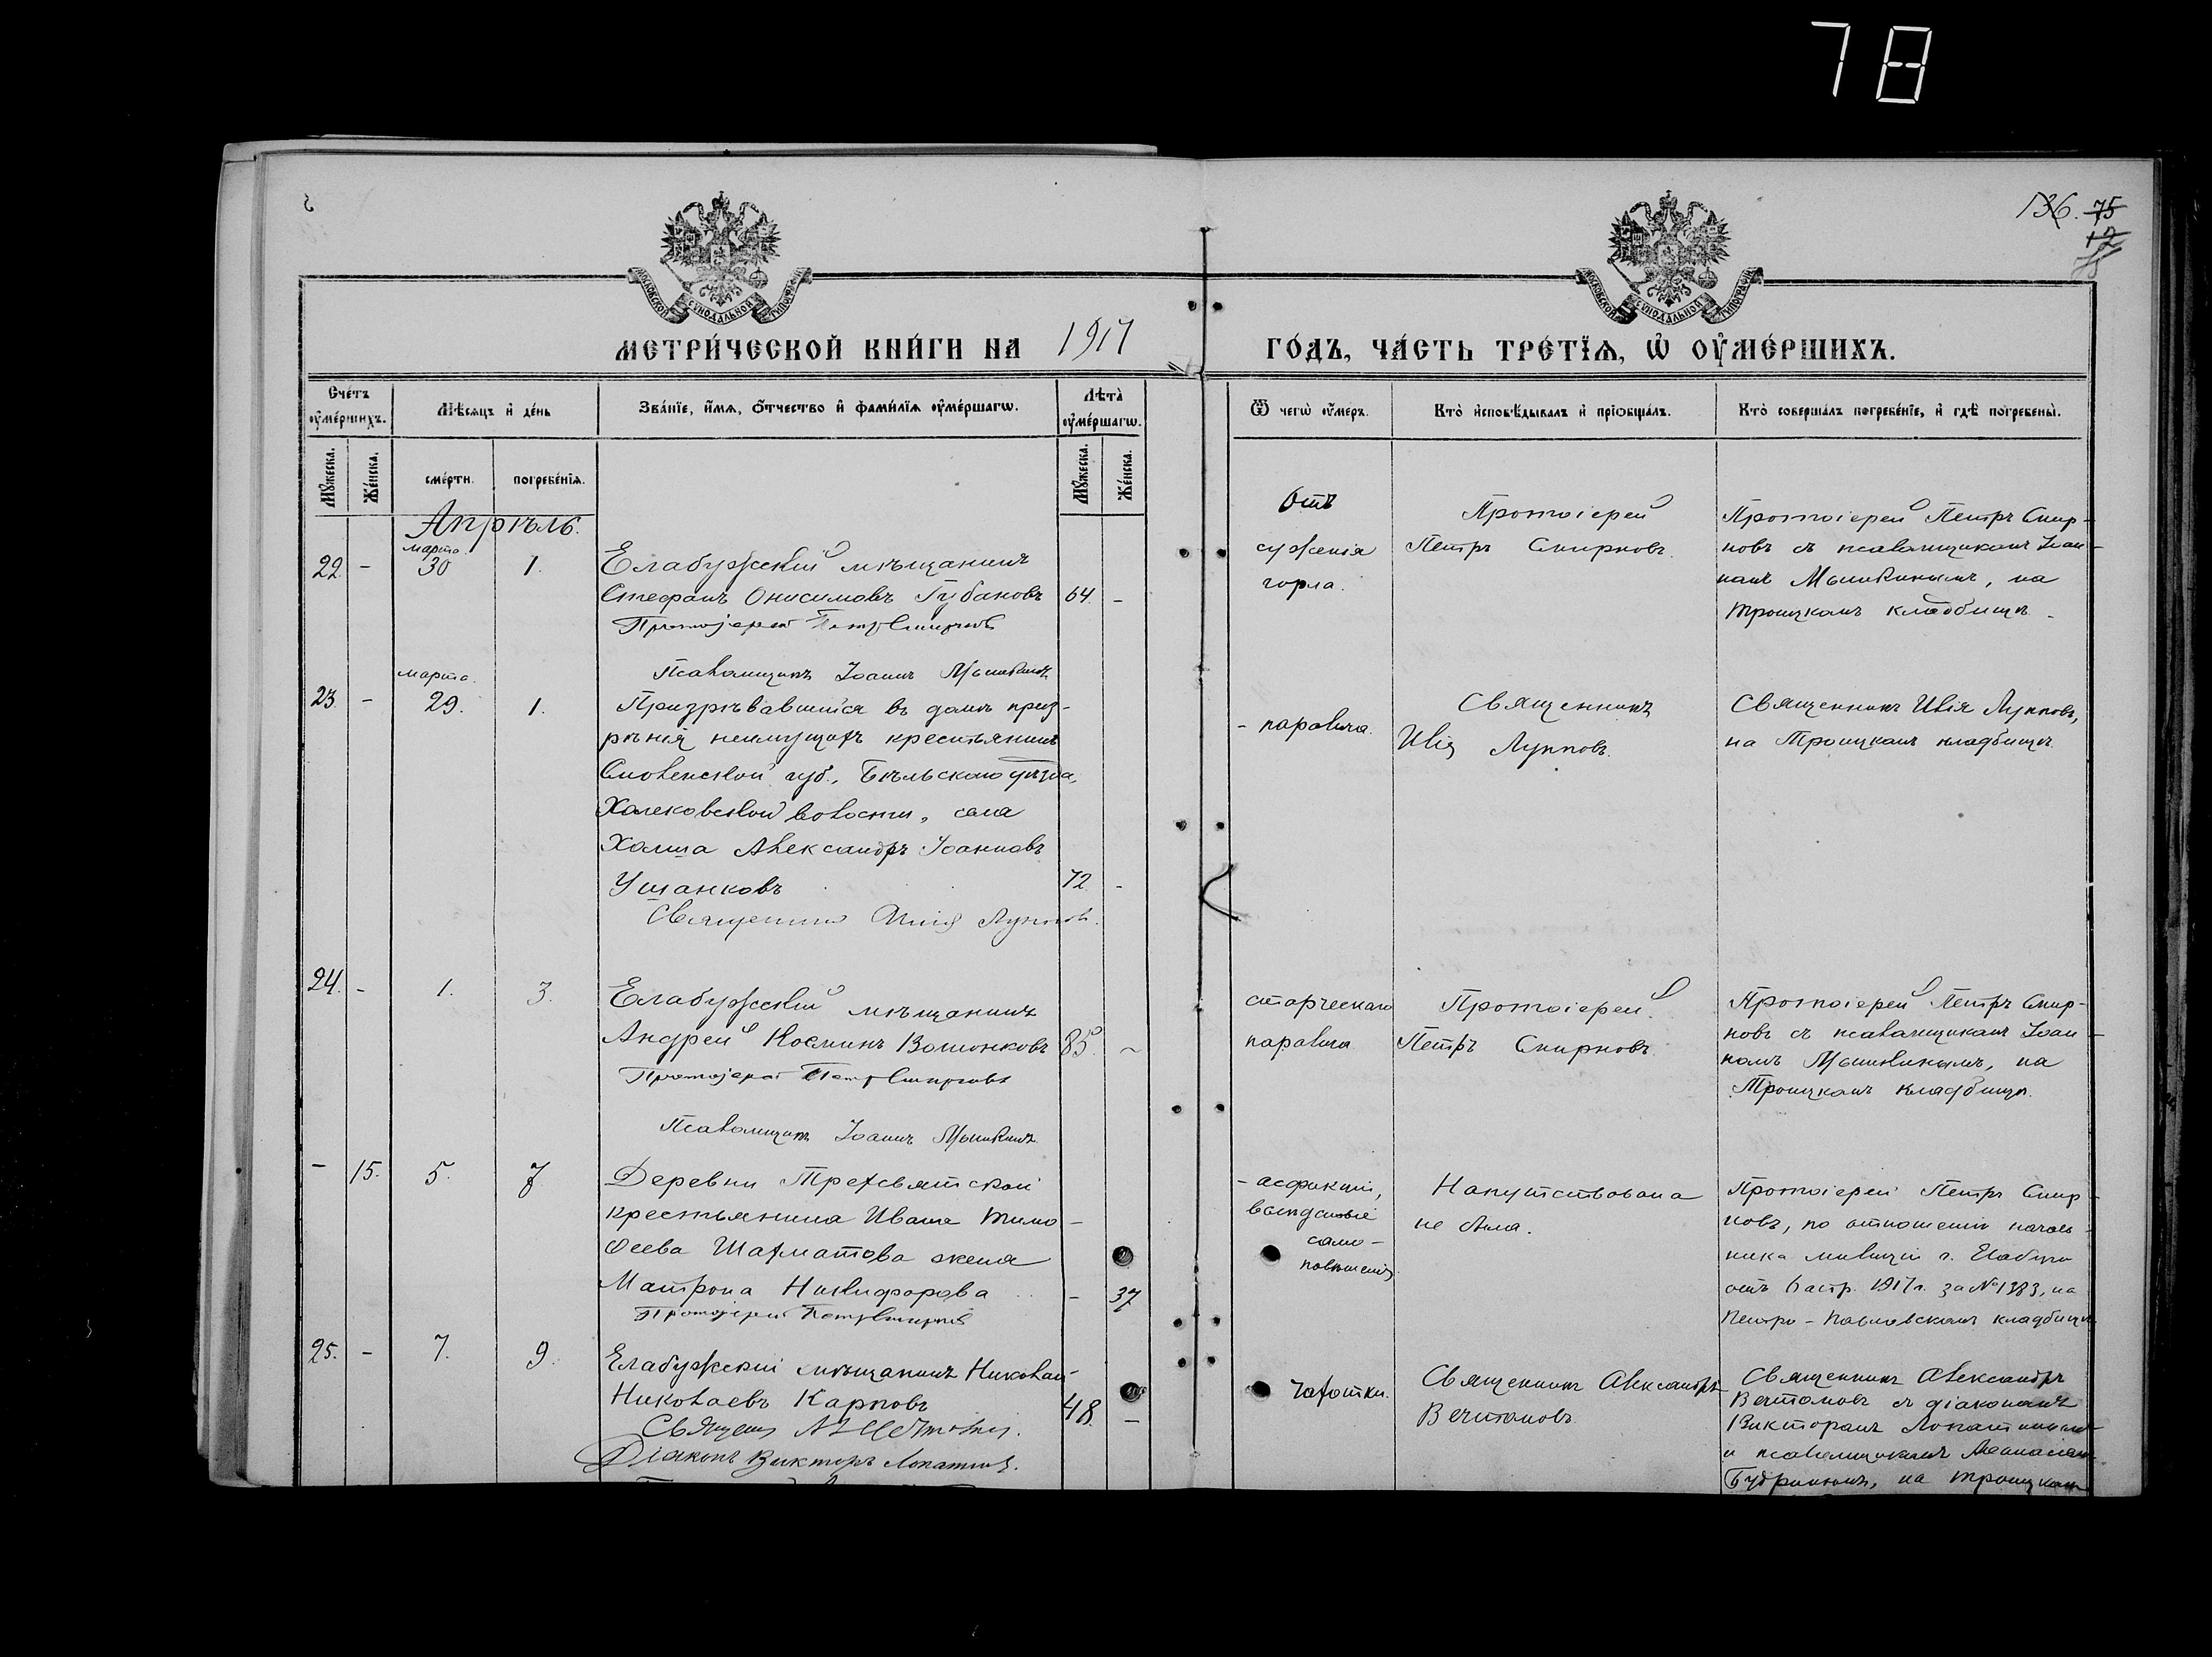 78
136. 75
МОСКОВСКОЙ СѴНОДАЛЬНОЙ ТИПОГРАФІИ
МОСКОВСКОЙ СѴНОДАЛЬНОЙ ТИПОГРАФІИ
МЕТРИ́ЧЕСКОЙ КНИ́ГИ НА 1917 ГО́ДЪ, ЧА́СТЬ ТРЕ́ТІѦ, Ѡ҆ ОУ҆МЕ́РШИХЪ.
Сче́тъ оу҆ме́ршихъ.
Мѣ́сѧцъ и҆ де́нь
Зва́нїе, и҆́мѧ, ѻ҆́тчество и҆ фами́лїѧ оу҆ме́ршагѡ.
Лѣ̑та̀ оу҆ме́ршагѡ.
Ѿ чегѡ̀ оу҆́меръ.
Кто̀ и҆сповѣ́дывалъ и҆ прїѻбща́лъ.
Кто̀ соверша́лъ погребе́нїе, и҆ гдѣ̀ погребены̀.
Мꙋ́жеска.
Же́нска.
сме́рти.
погребе́нїѧ.
Мꙋ́жеска.
Же́нска.
Апрѣль.
22 - марта 30 1.
Елабужскій мѣщанинъ
Стефанъ Онисимовъ Губановъ 64. -
Протоіерей Петръ Смирновъ
Псаломщикъ Іоаннъ Мышкинъ
Отъ
суженія
горла.
Протоіерей
Петръ Смирновъ.
Протоіерей Петръ Смир-
новъ съ псаломщикомъ Іоан-
номъ Мышкинымъ, на
Троицкомъ кладбищѣ.
23. - марта. 29. 1.
Призрѣвавшийся въ домѣ приз-
рѣнія неимущихъ крестьянинъ
Смоленской губ., Бѣльскаго уѣзда,
волости, села
Холма Александръ Іоанновъ
Ушанковъ 72 -
Священникъ Илія Лупповъ.
- паралича.
Священникъ
Илія Лупповъ.
Священникъ Илія Лупповъ,
на Троицкомъ кладбищѣ.
24. - 1. 3.
Елабужскій мѣщанинъ
Андрей Косминъ 85. -
Протоіерей Петръ Смирновъ
Псаломщикъ Іоаннъ Мышкинъ
старческаго
паралича
Протоіерей
Петръ Смирновъ.
Протоіерей Петръ Смир-
новъ съ псаломщикомъ Іоан-
номъ Мышкинымъ, на
Троицкомъ кладбищѣ.
- 15. 5. 7
Деревни Трехсвятской
крестьянина Ивана Тимо-
ѳеева Шахматова жена
Матрона Никифорова - 37
Протоіерей Петръ Смирновъ
- асфиксіи,
вслѣдствіе
само-
повѣшенія.
Напутствована
не была.
Протоіерей Петръ Смир-
новъ, по отношенію началь-
ника милиціи г. Елабуги
отъ 6 апр. 1917 г. за № 1383, на
Петро-Павловскомъ кладбищѣ.
25. - 7. 9.
Елабужскій мѣщанинъ Николай
Николаевъ Карповъ 48. -
Діаконъ Викторъ Лопатинъ.
чахотки.
Священникъ Александръ
Вечтомовъ.
Священникъ Александръ
Вечтомовъ съ діакономъ
Викторомъ Лопатинымъ
и псаломщикомъ
Будринымъ, на Троицкомъ